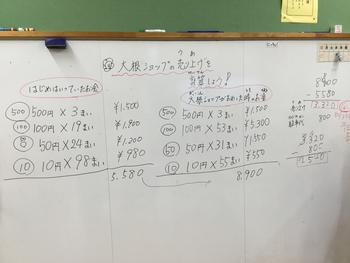 大根ショップの売り上げを
計算しよう!
はじめはいっていたお金
500 500円×3まい ¥1.500
100 100円×19まい ¥1.900
50円×24まい ¥1.200
10 10円×98まい ¥980
5.580
大根ショップがおわった時のお金
500 500円×3まい ¥1.500
100 100円×53まい ¥5.300
50 50円×31まい ¥1.550
10 10円×55まい ¥550
8.900
8900
-5580
3.320
800
3320
-800
2520